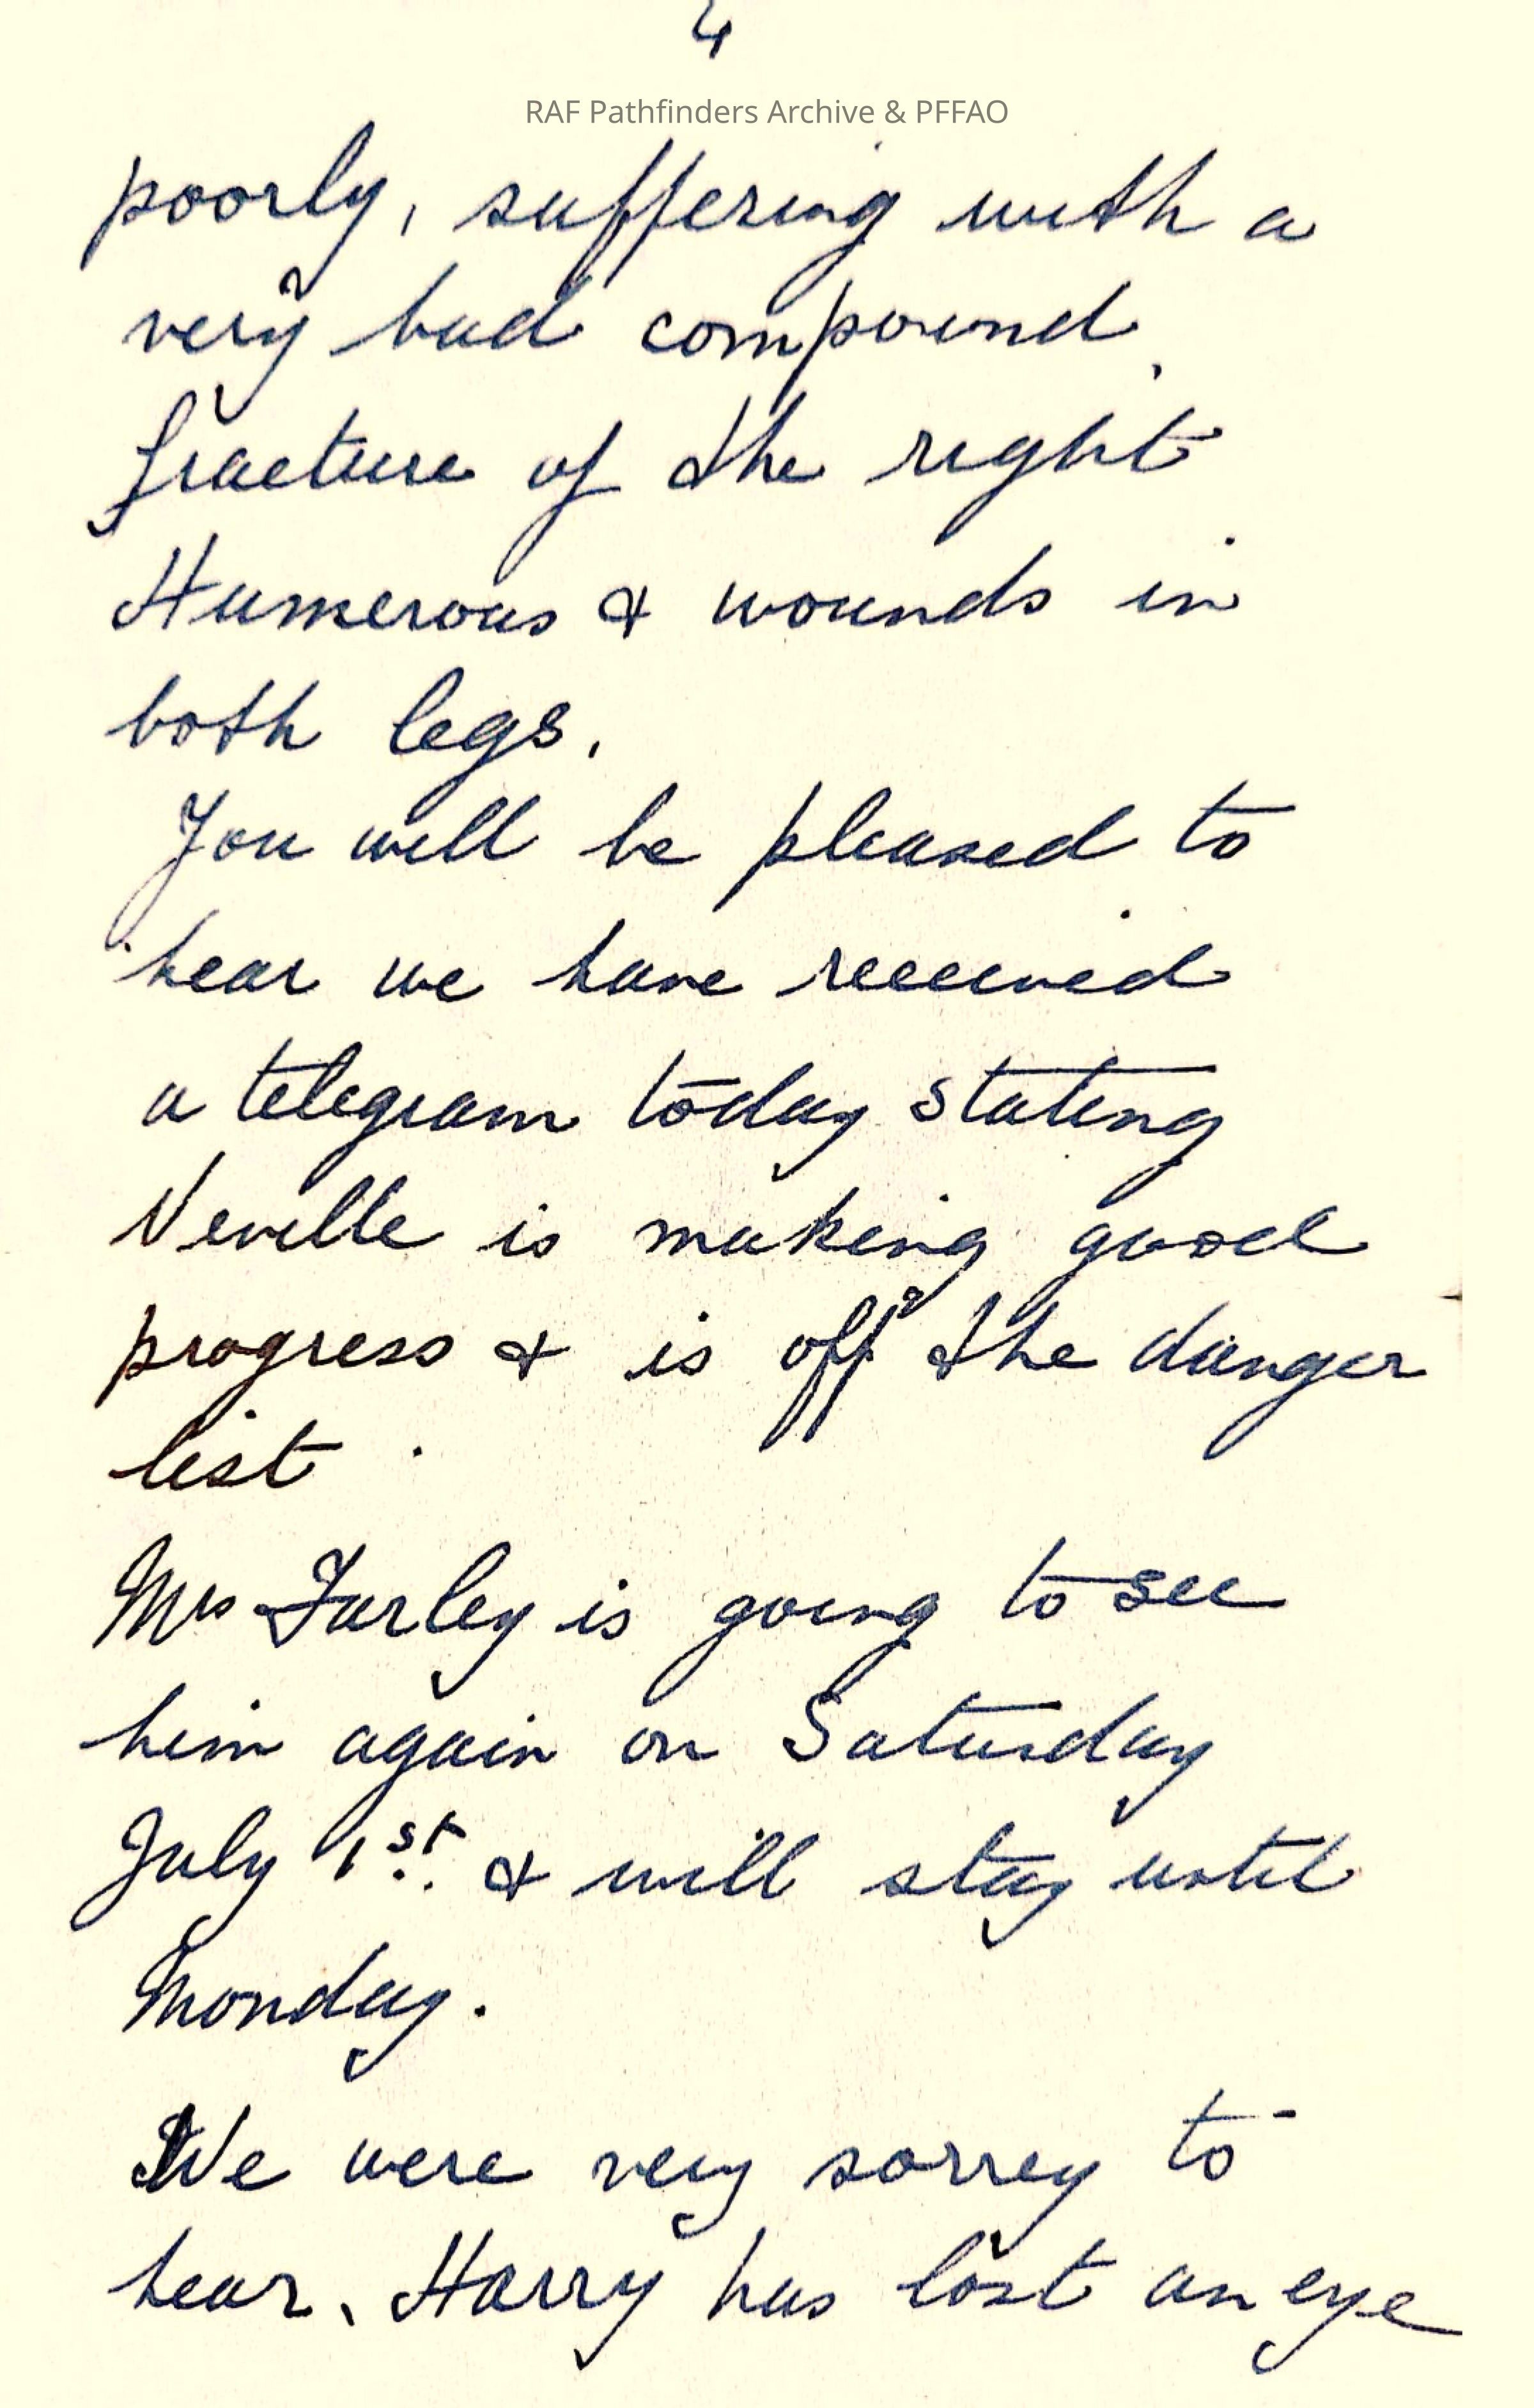 4
RAF Pathfinders Archive & PFFAO
poorly, suffering with a
very bad compound
fracture of the right
Humerous & wounds in
both legs.
You will be pleased to
hear we have received
a telegram today stating
Neville is making good
progress & is off the danger
list.
Mrs Farley is going to see
him again on Saturday
July 1st. & will stay until
Monday.
We were very sorrey to
hear, Harry has lost an eye